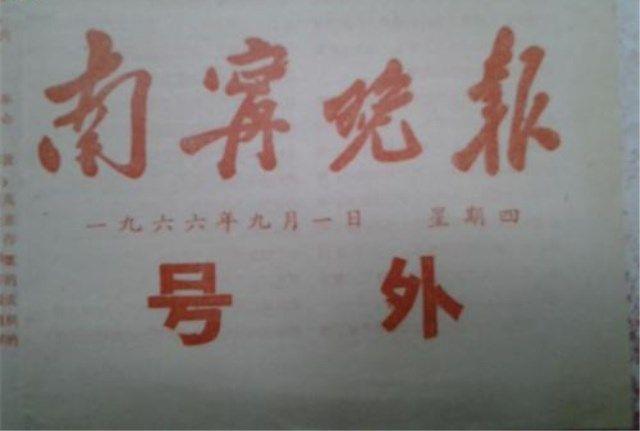 南宁晚报
一九六六年九月一日 星期四
号外